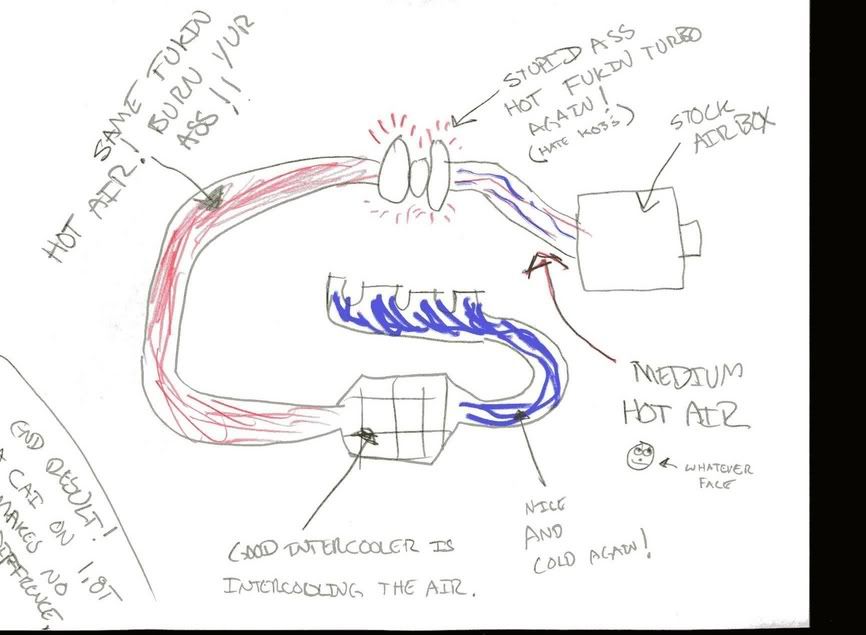 SAME FUKIN
HOT AIR! BURN YUR
ASS!!
STUPID ASS
HOT FUKIN TURBO
AGAIN!
(HATE K03's)
STOCK
AIRBOX
MEDIUM
HOT AIR
WHATEVER
FACE
NICE
AND
COLD AGAIN!
GOOD INTERCOOLER IS
INTERCOOLING THE AIR.
END RESULT!
A CAI ON 1.8T
MAKES NO
DIFFERENCE,